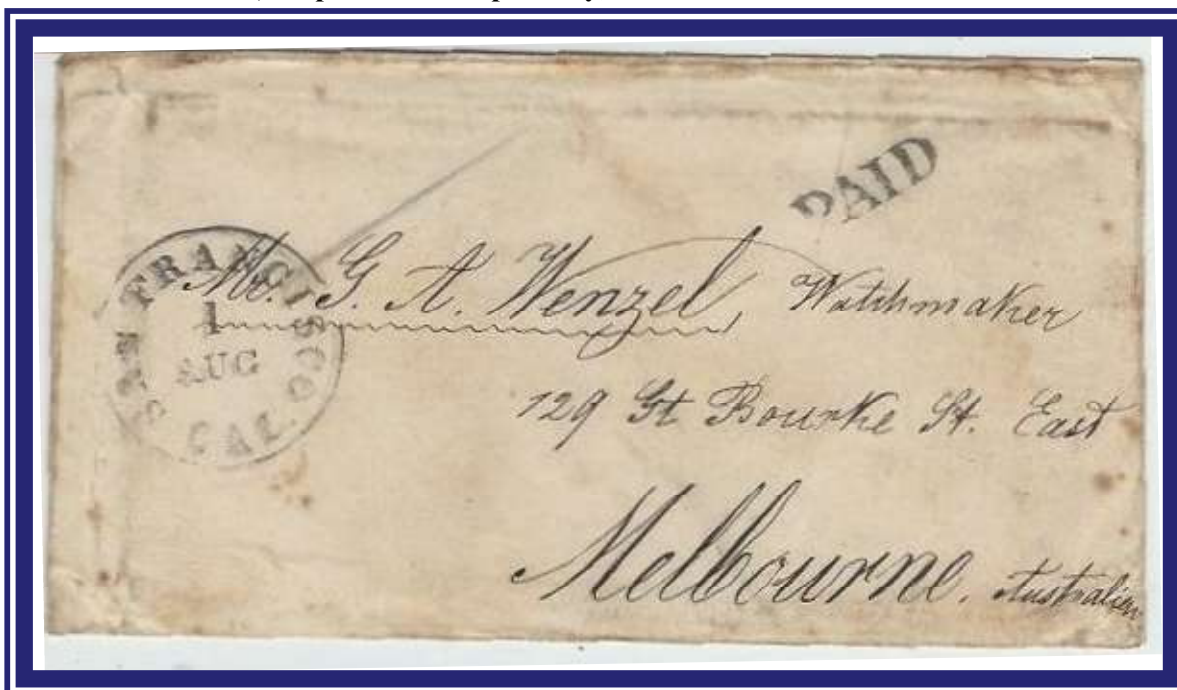 PAID
SAN FRANCISCO
1
AUG
CAL.
Mr. G. A. Wenzel, Watchmaker
129 Gt Bourke St. East
Melbourne. Australien